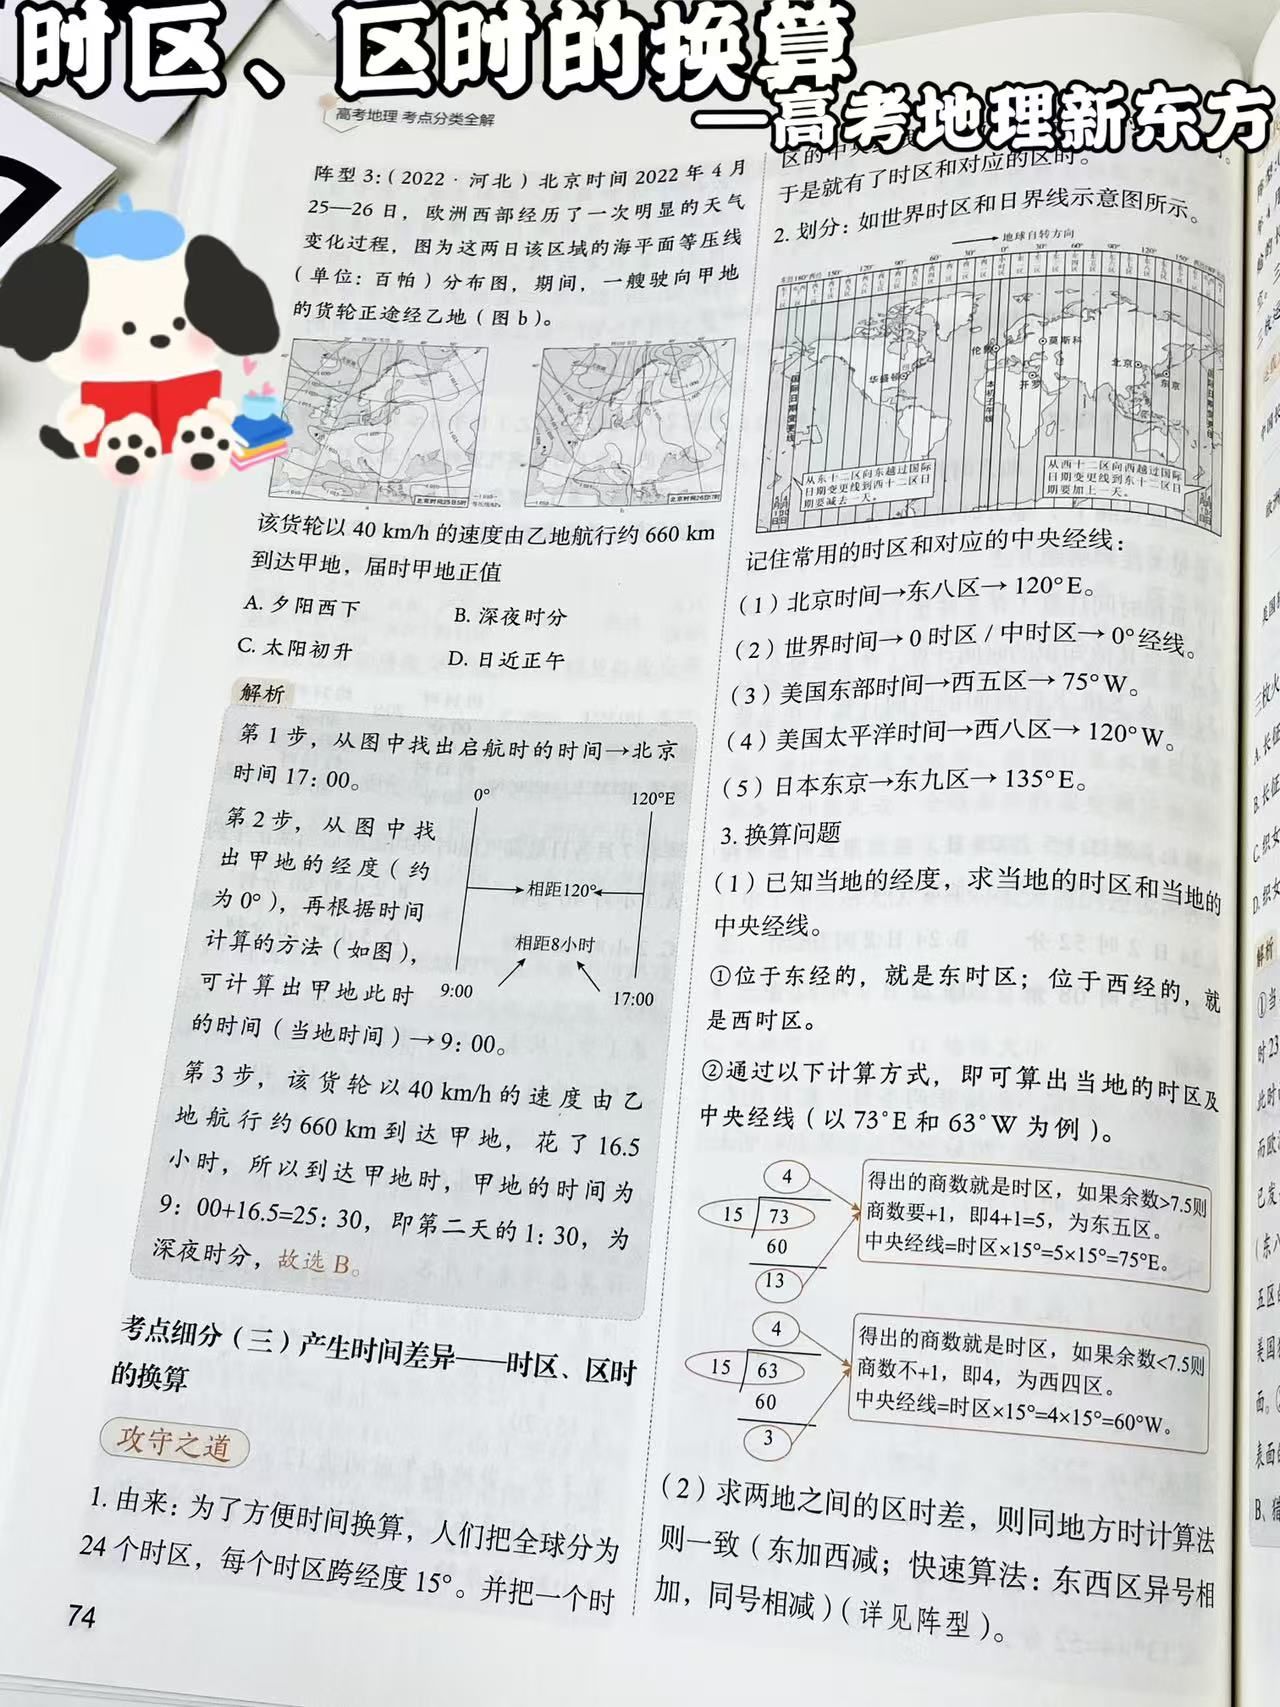 时区、区时的换算
—高考地理新东方
高考地理 考点分类全解
阵型3:(2022·河北)北京时间2022年4月
25—26日，欧洲西部经历了一次明显的天气
变化过程，图为这两日该区域的海平面等压线
(单位：百帕)分布图，期间，一艘驶向甲地
的货轮正途经乙地(图b)。
北京时间25日5时
北京时间26日17时
a
b
该货轮以40 km/h的速度由乙地航行约660 km
到达甲地，届时甲地正值
A. 夕阳西下
B. 深夜时分
C. 太阳初升
D. 日近正午
解析
第1步，从图中找出启航时的时间→北京
时间17:00。
第2步，从图中找
出甲地的经度(约
为0°)，再根据时间
计算的方法(如图)，
可计算出甲地此时
的时间(当地时间)→9:00。
0°
120°E
相距120°
相距8小时
9:00
17:00
第3步，该货轮以40 km/h的速度由乙
地航行约660 km到达甲地，花了16.5
小时，所以到达甲地时，甲地的时间为
9:00+16.5=25:30，即第二天的1:30，为
深夜时分，故选B。
考点细分(三)产生时间差异——时区、区时
的换算
攻守之道
1. 由来：为了方便时间换算，人们把全球分为
24个时区，每个时区跨经度15°。并把一个时
74
区的中央经
于是就有了时区和对应的区时。
2. 划分：如世界时区和日界线示意图所示。
地球自转方向
180°
150°
120°
90°
60°
30°
0°
30°
60°
90°
120°
150°
伦敦
莫斯科
华盛顿
开罗
北京
东京
国际日期变更线
本初子午线
国际日期变更线
从东十二区向东越过国际
日期变更线到西十二区日
期要减去一天。
从西十二区向西越过国际
日期变更线到东十二区日
期要加上一天。
记住常用的时区和对应的中央经线：
(1)北京时间→东八区→120°E。
(2)世界时间→0时区/中时区→0°经线。
(3)美国东部时间→西五区→75°W。
(4)美国太平洋时间→西八区→120°W。
(5)日本东京→东九区→135°E。
3. 换算问题
(1)已知当地的经度，求当地的时区和当地的
中央经线。
①位于东经的，就是东时区；位于西经的，就
是西时区。
②通过以下计算方式，即可算出当地的时区及
中央经线(以73°E和63°W为例)。
4
15 73
60
13
得出的商数就是时区，如果余数>7.5则
商数要+1，即4+1=5，为东五区。
中央经线=时区×15°=5×15°=75°E。
4
15 63
60
3
得出的商数就是时区，如果余数<7.5则
商数不+1，即4，为西四区。
中央经线=时区×15°=4×15°=60°W。
(2)求两地之间的区时差，则同地方时计算法
则一致(东加西减；快速算法：东西区异号相
加，同号相减)(详见阵型)。